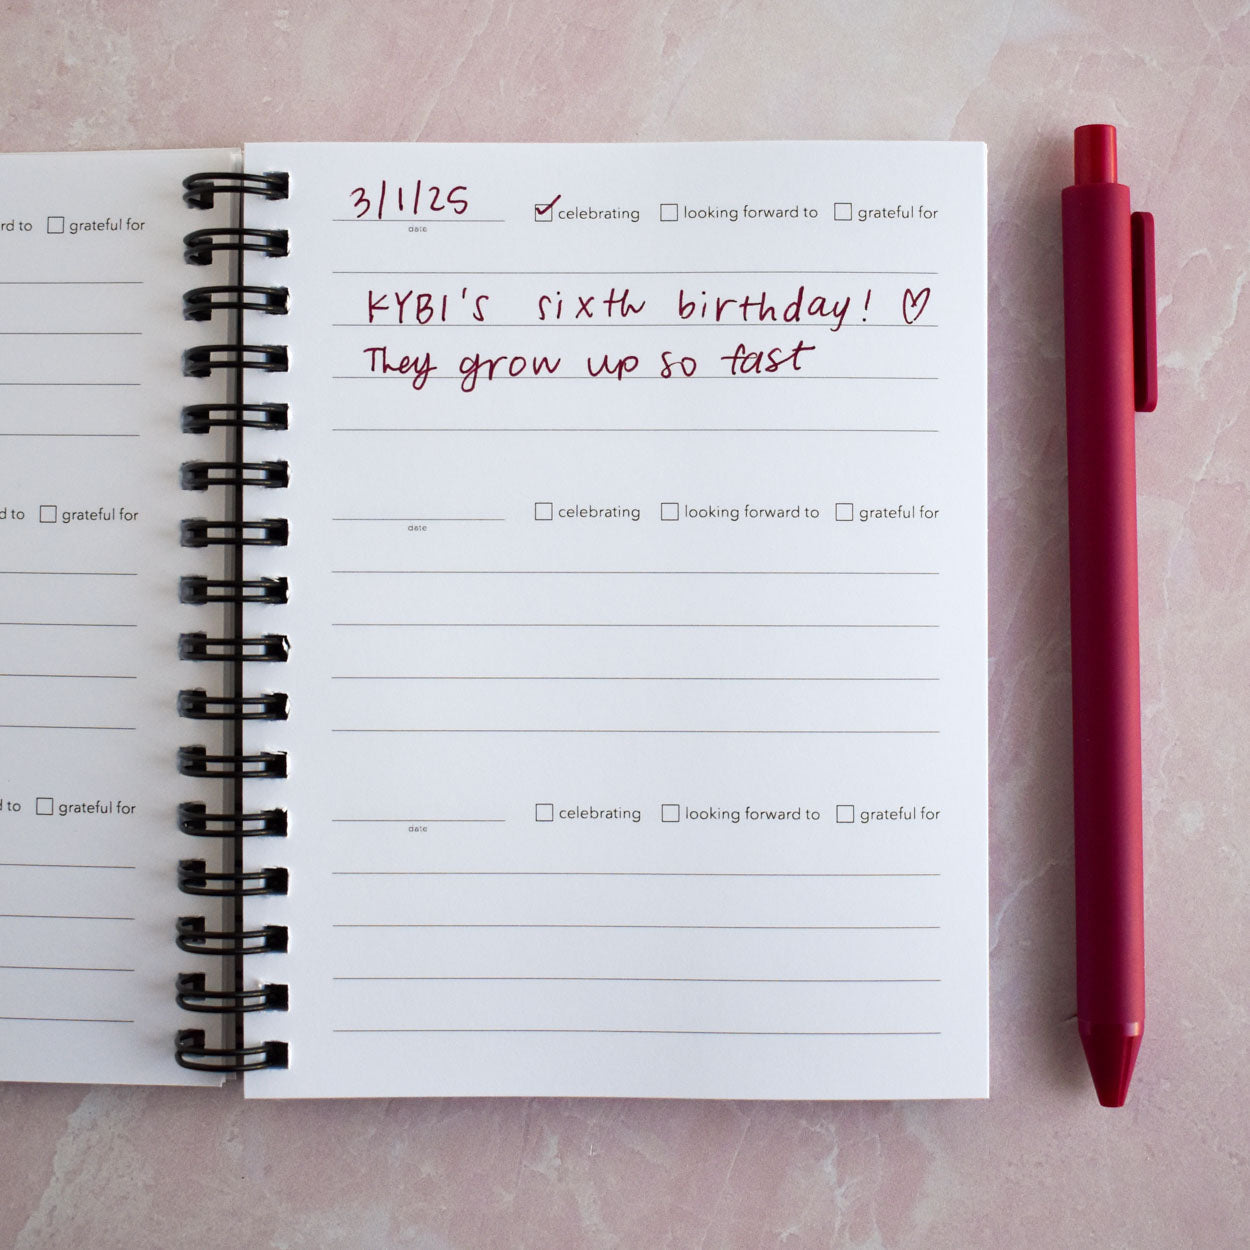 rd to grateful for
d to grateful for
to grateful for
3/1/25 celebrating looking forward to grateful for
date
KYBI's sixth birthday! ♡
They grow up so fast
celebrating looking forward to grateful for
date
celebrating looking forward to grateful for
date